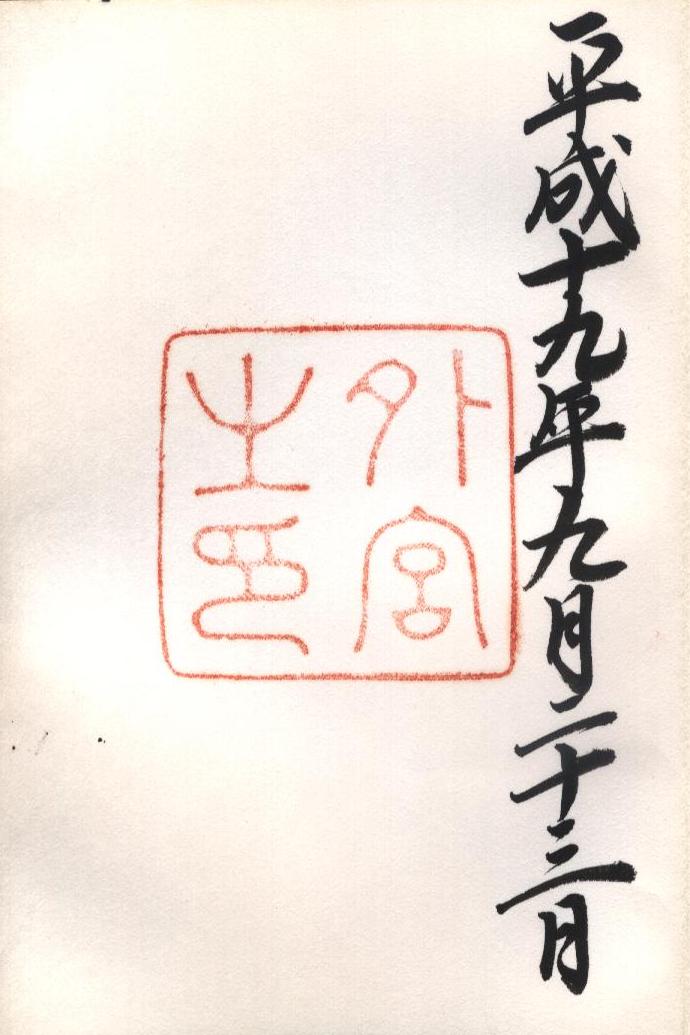 平成十九年九月二十三日
外宮
之印